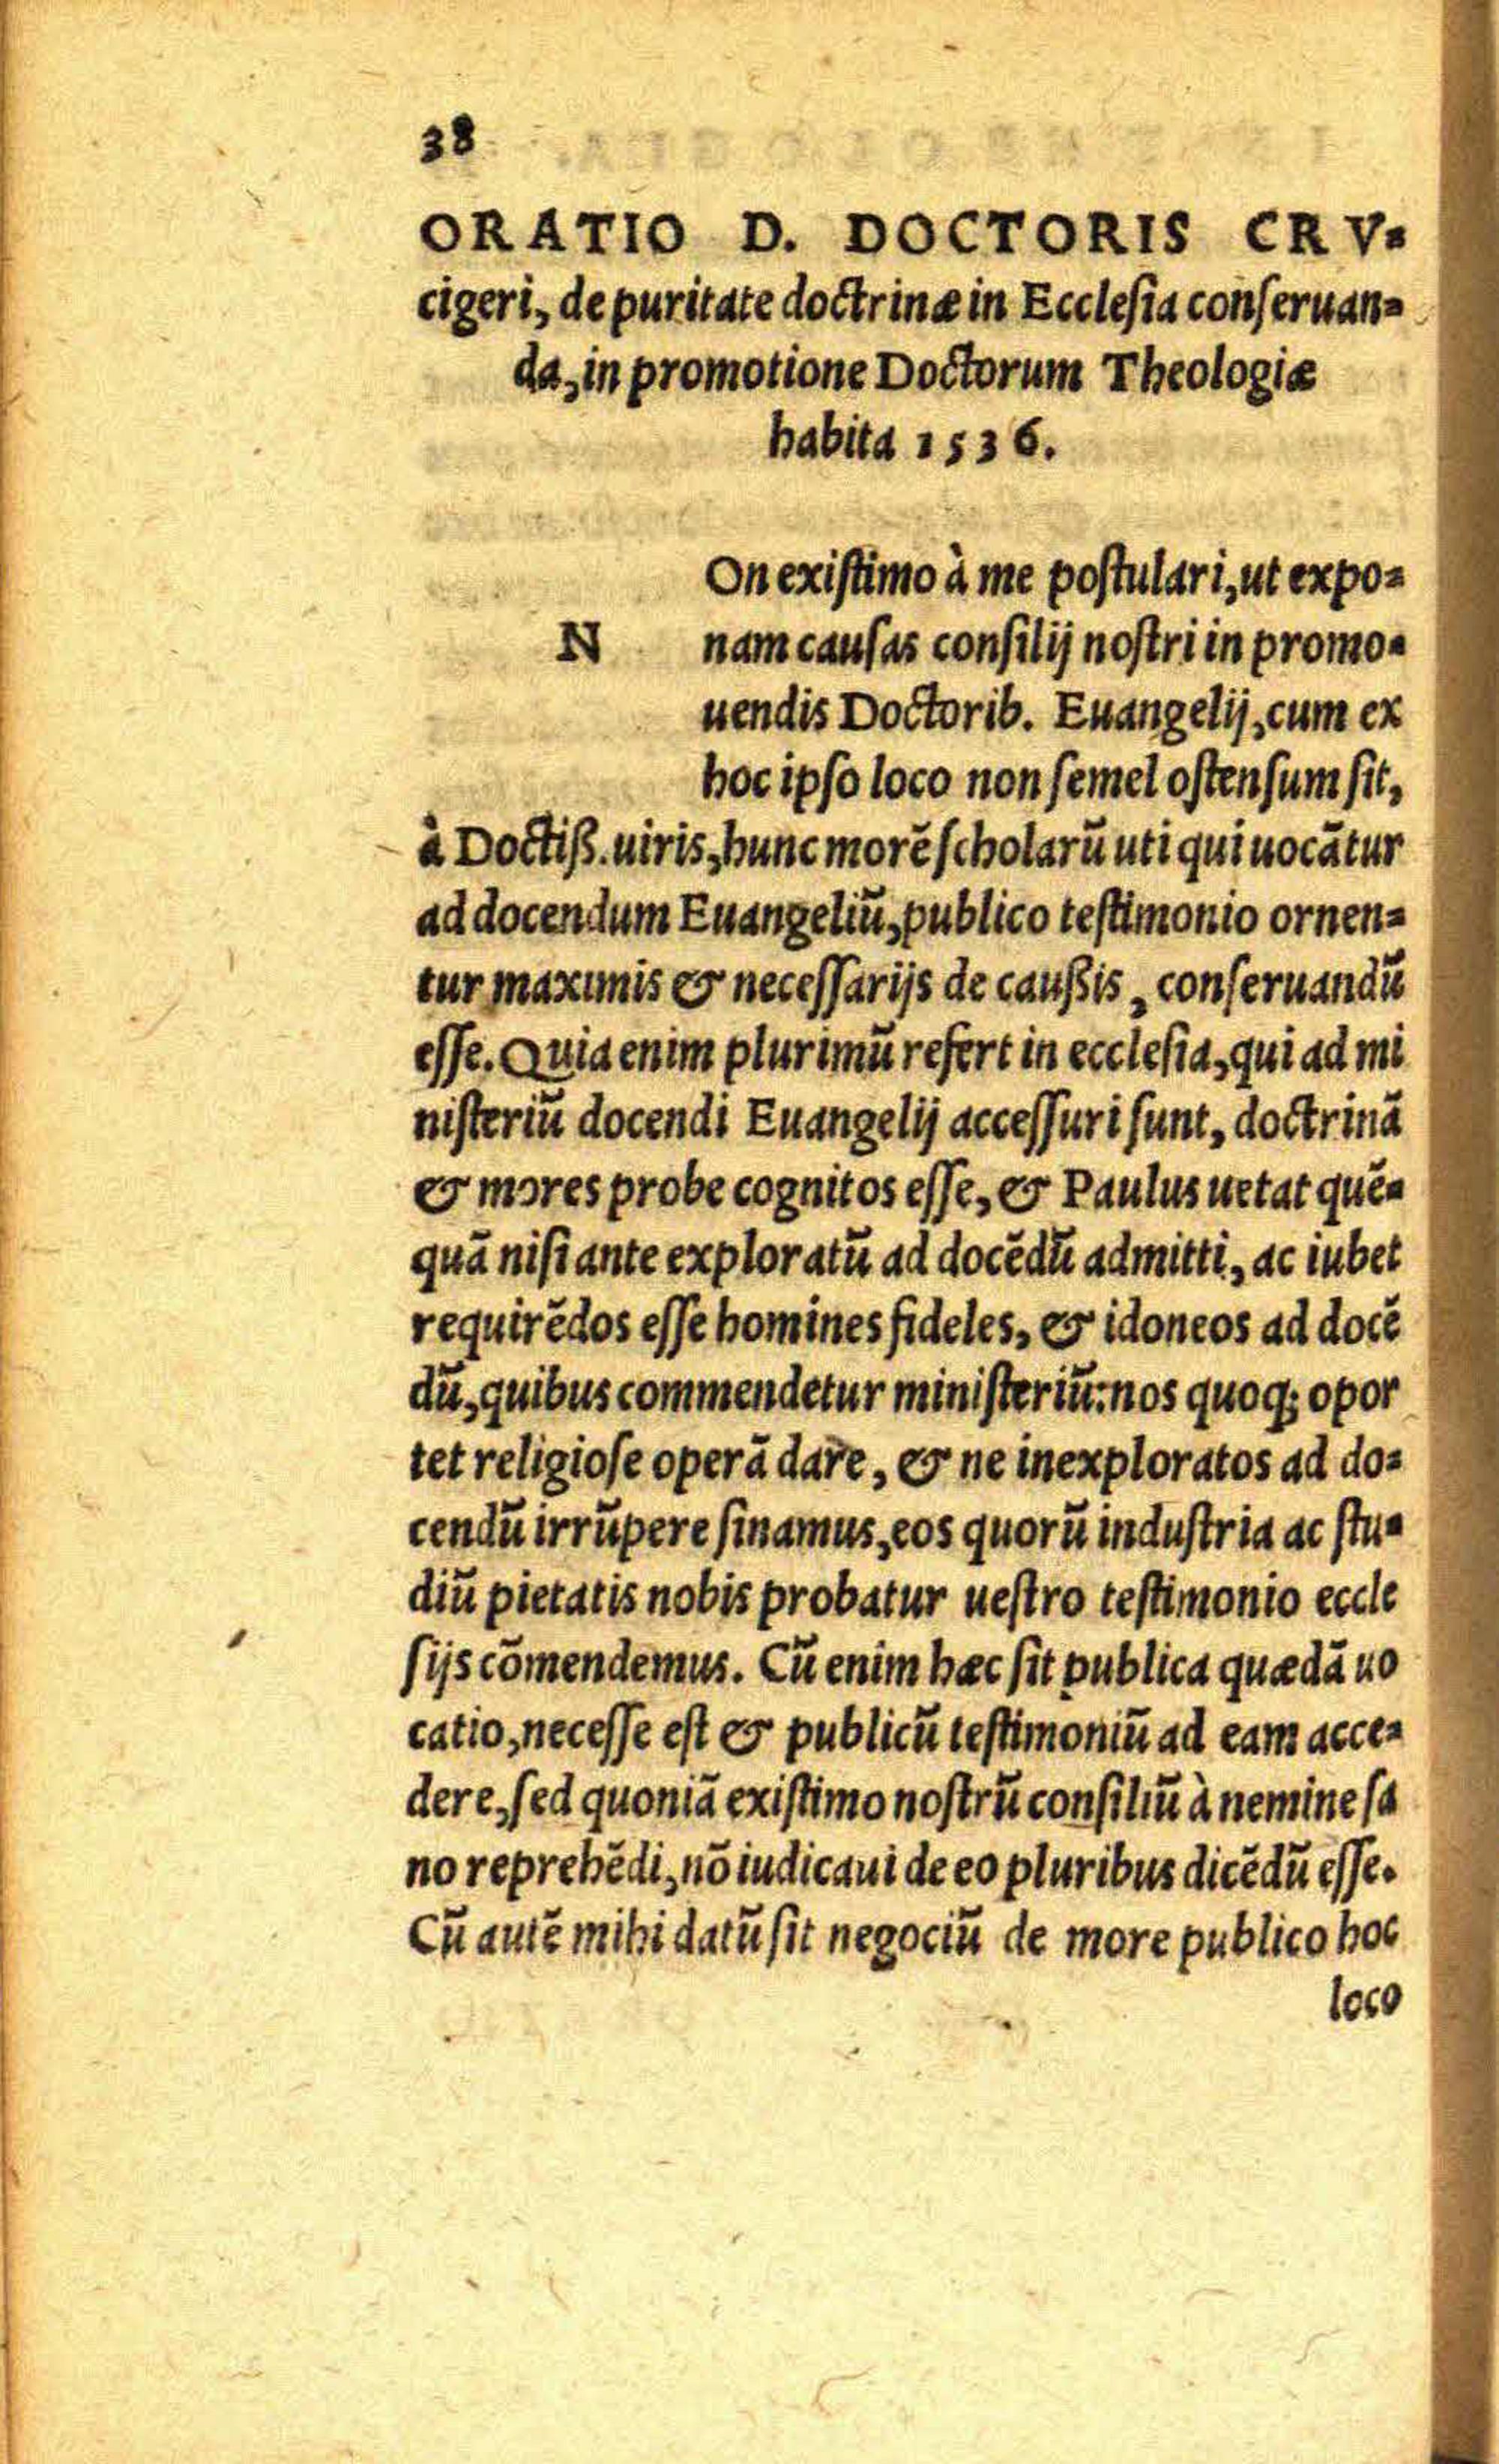 38
ORATIO D. DOCTORIS CRV-
cigeri, de puritate doctrinæ in Ecclesia conseruan-
da, in promotione Doctorum Theologiæ
habita 1536.
On existimo à me postulari, ut expo-
N nam causas consilij nostri in promo-
uendis Doctorib. Euangelij, cum ex
hoc ipso loco non semel ostensum sit,
à Doctiß. uiris, hunc morē scholarū uti qui uocātur
ad docendum Euangeliū, publico testimonio ornen-
tur maximis & necessarijs de caußis, conseruandū
esse. Quia enim plurimū refert in ecclesia, qui ad mi
nisteriū docendi Euangelij accessuri sunt, doctrinā
& mores probe cognitos esse, & Paulus uetat quē-
quā nisi ante exploratū ad docēdū admitti, ac iubet
requirēdos esse homines fideles, & idoneos ad docē
dū, quibus commendetur ministeriū: nos quoq; opor
tet religiose operā dare, & ne inexploratos ad do-
cendū irrūpere sinamus, eos quorū industria ac stu-
diū pietatis nobis probatur uestro testimonio eccle
sijs cōmendemus. Cū enim hæc sit publica quædā uo
catio, necesse est & publicū testimoniū ad eam acce-
dere, sed quoniā existimo nostrū consiliū à nemine sa
no reprehēdi, nō iudicaui de eo pluribus dicēdū esse.
Cū autē mihi datū sit negociū de more publico hoc
loco